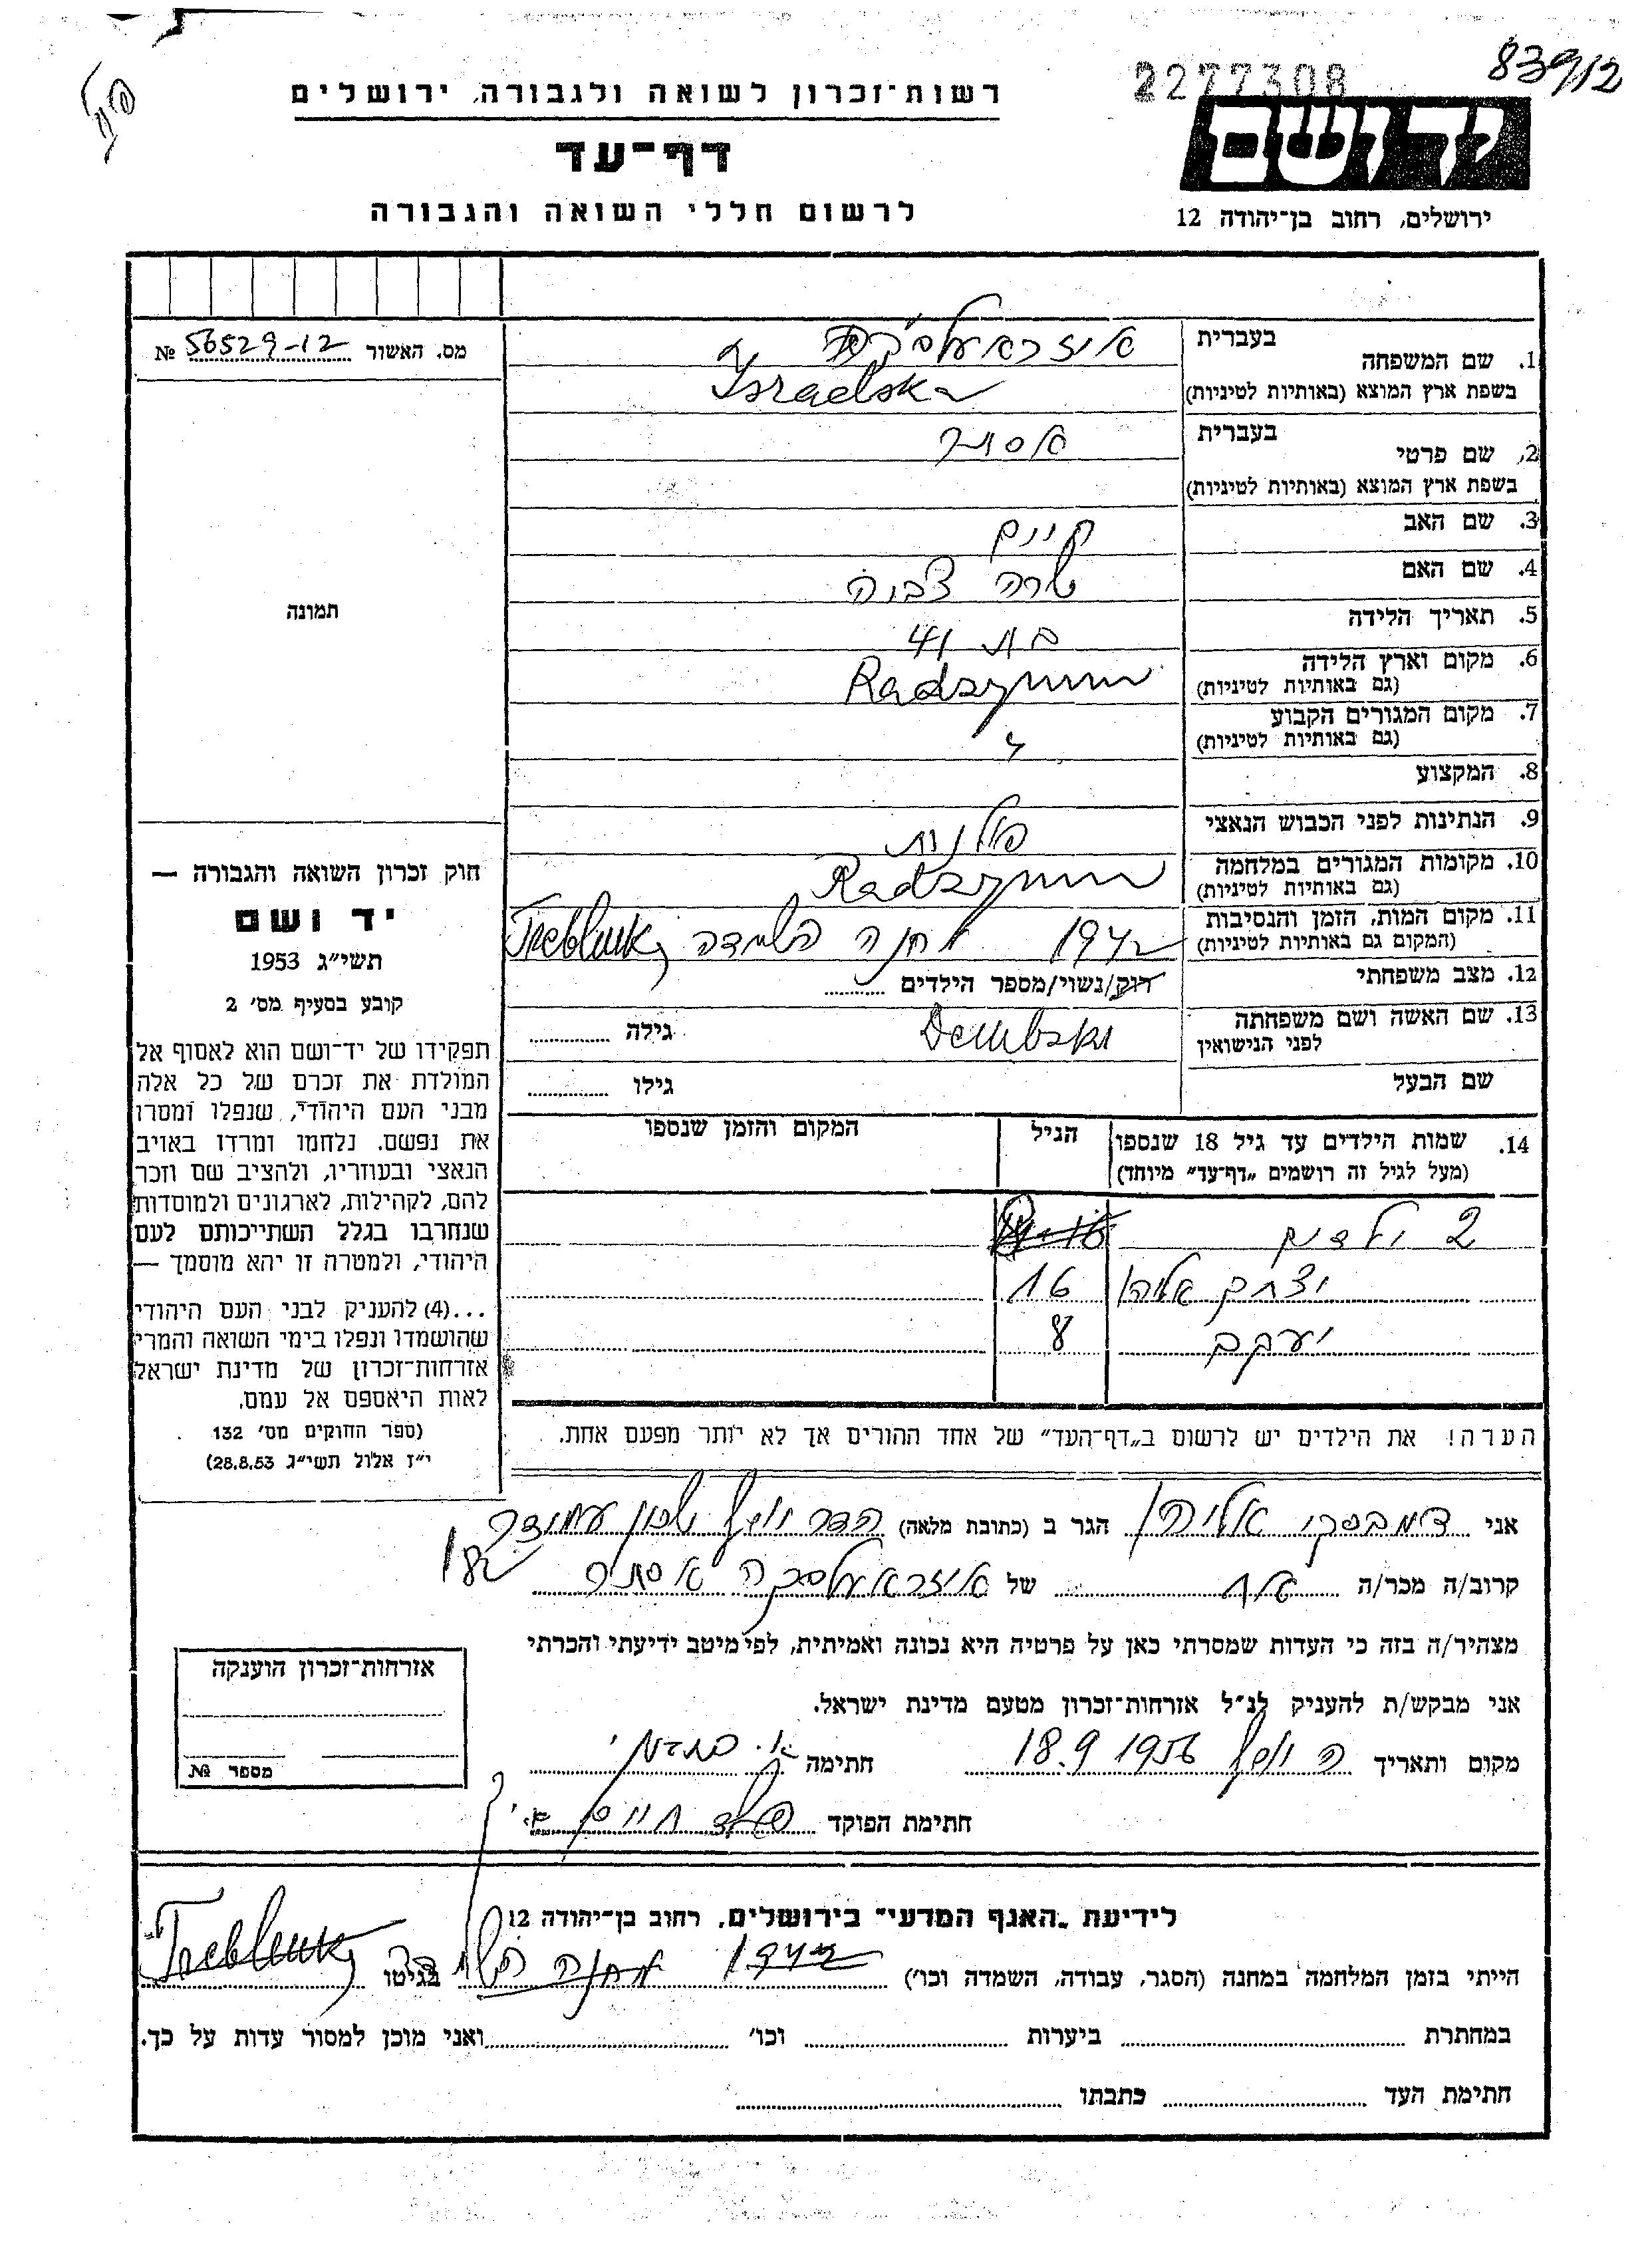 83912
2277308
רשות־זכרון לשואה ולגבורה, ירושלים
ידושם
דף־עד
ירושלים, רחוב בן־יהודה 12
לרשום חללי השואה והגבורה
מס. האשור 56529-12 №
1. שם המשפחה
בעברית
איזראעלסקה
בשפת ארץ המוצא (באותיות לטיניות) Israelska
2. שם פרטי
בעברית
אסתר
בשפת ארץ המוצא (באותיות לטיניות)
3. שם האב
4. שם האם שרה צביה
5. תאריך הלידה בת 41
6. מקום וארץ הלידה Radzymin
(גם באותיות לטיניות)
7. מקום המגורים הקבוע
(גם באותיות לטיניות)
8. המקצוע
9. הנתינות לפני הכבוש הנאצי פולנית
10. מקומות המגורים במלחמה Radzymin
(גם באותיות לטיניות)
11. מקום המות, הזמן והנסיבות 1942 מחנה השמדה Treblinka
(המקום גם באותיות לטיניות)
12. מצב משפחתי רוק/נשוי/מספר הילדים
13. שם האשה ושם משפחתה Dembski גילה
לפני הנישואין
שם הבעל גילו
14. שמות הילדים עד גיל 18 שנספו הגיל המקום והזמן שנספו
(מעל לגיל זה רושמים „דף־עד” מיוחד)
2 ילדים
יצחק אליהו 16
יעקב 8
הערה! את הילדים יש לרשום ב„דף־העד” של אחד ההורים אך לא יותר מפעם אחת.
תמונה
חוק זכרון השואה והגבורה —
יד ושם
תשי״ג 1953
קובע בסעיף מס׳ 2
תפקידו של יד־ושם הוא לאסוף אל
המולדת את זכרם של כל אלה
מבני העם היהודי, שנפלו ומסרו
את נפשם. נלחמו ומרדו באויב
הנאצי ובעוזריו, ולהציב שם וזכר
להם, לקהילות, לארגונים ולמוסדות
שנחרבו בגלל השתייכותם לעם
היהודי, ולמטרה זו יהא מוסמך —
...(4) להעניק לבני העם היהודי
שהושמדו ונפלו בימי השואה והמרי
אזרחות־זכרון של מדינת ישראל
לאות היאספם אל עמם.
(ספר החוקים מס׳ 132
י״ז אלול תשי״ג 28.8.53)
אני דמבסקי אליהו הגר ב (כתובת מלאה) הדר יוסף שכון עמידר
181
קרוב/ה מכר/ה אח של איזראעלסקה אסתר
מצהיר/ה בזה כי העדות שמסרתי כאן על פרטיה היא נכונה ואמיתית, לפי מיטב ידיעתי והכרתי
אני מבקש/ת להעניק לנ״ל אזרחות־זכרון מטעם מדינת ישראל.
מקום ותאריך ה יוסף 18.9 1956 חתימה
חתימת הפוקד
אזרחות־זכרון הוענקה
מספר №
לידיעת „האגף המדעי” בירושלים, רחוב בן־יהודה 12
הייתי בזמן המלחמה במחנה (הסגר, עבודה, השמדה וכו׳) 1942 מחנה בגיטו Treblinka
במחתרת ביערות וכו׳ ואני מוכן למסור עדות על כך.
חתימת העד כתבתו